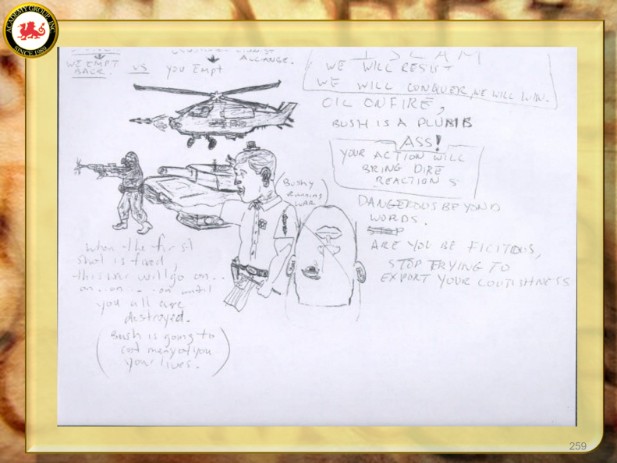 ACADEMY GROUP, INC
SINCE 1989
WE EMPT
BACK.
VS
YOU EMPT
ALLIANCE.
ISLAM
WE WILL RESIST
WE WILL CONQUER, WE WILL WIN.
OIL ON FIRE,
BUSH IS A
ASS!
YOUR ACTION WILL
BRING DIRE
REACTIONS
DANGEROUS BEYOND
WORDS.
ARE YOU BE
STOP TRYING TO
EXPORT YOUR
(Bushy
Running
WAR)
When the first
shot is fired
this war will go on...
on... on.... on until
you all are
destroyed.
(Bush is going to
cost many of you
your lives.)
259